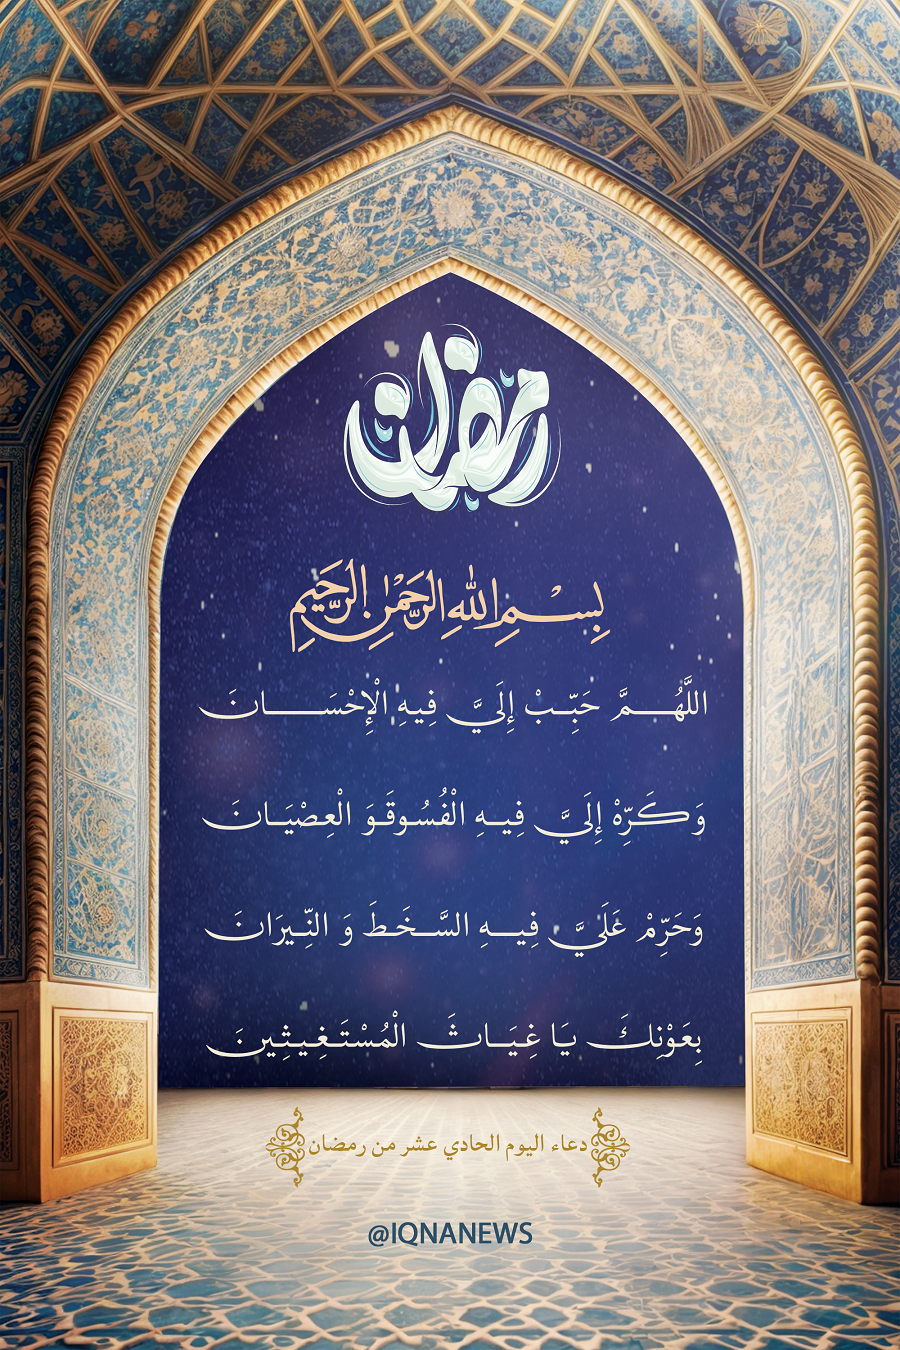 رمضان
بِسْمِ اللهِ الرَّحْمٰنِ الرَّحِيمِ
اللَّهُمَّ حَبِّبْ إِلَيَّ فِيهِ الْإِحْسَانَ
وَكَرِّهْ إِلَيَّ فِيهِ الْفُسُوقَوَ الْعِصْيَانَ
وَحَرِّمْ عَلَيَّ فِيهِ السَّخَطَ وَ النِّيرَانَ
بِعَوْنِكَ يَا غِيَاثَ الْمُسْتَغِيثِينَ
دعاء اليوم الحادي عشر من رمضان
@IQNANEWS